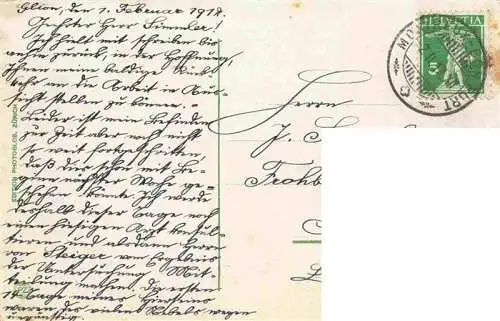 Glion, den 1. Februar 1912.
Geehrter Herr Simmler!
Ich hielt mit schreiben bis
zurück, in der Hoffnung,
Ihnen meine baldige Rück-
kehr an die Arbeit in Aus-
sicht stellen zu können.
Leider ist mein Befinden
zur Zeit aber noch nicht
so weit fortgeschritten,
daß dies schon mit Be-
ginn nächster Woche ge-
schehen könnte. Ich werde
deshalb dieser Tage noch
einen hiesigen Arzt konsul-
tieren und alsdann Herrn
von Steiger vom Ergebnis
der Untersuchung Mit-
teilung machen. Die ersten
14 Tage meines Hierseins
waren des vielen Nebels wegen
ungünstig
EDITION PHOTOGLOB, ZÜRICH
HELVETIA
5
Herrn
J. S
Frohb